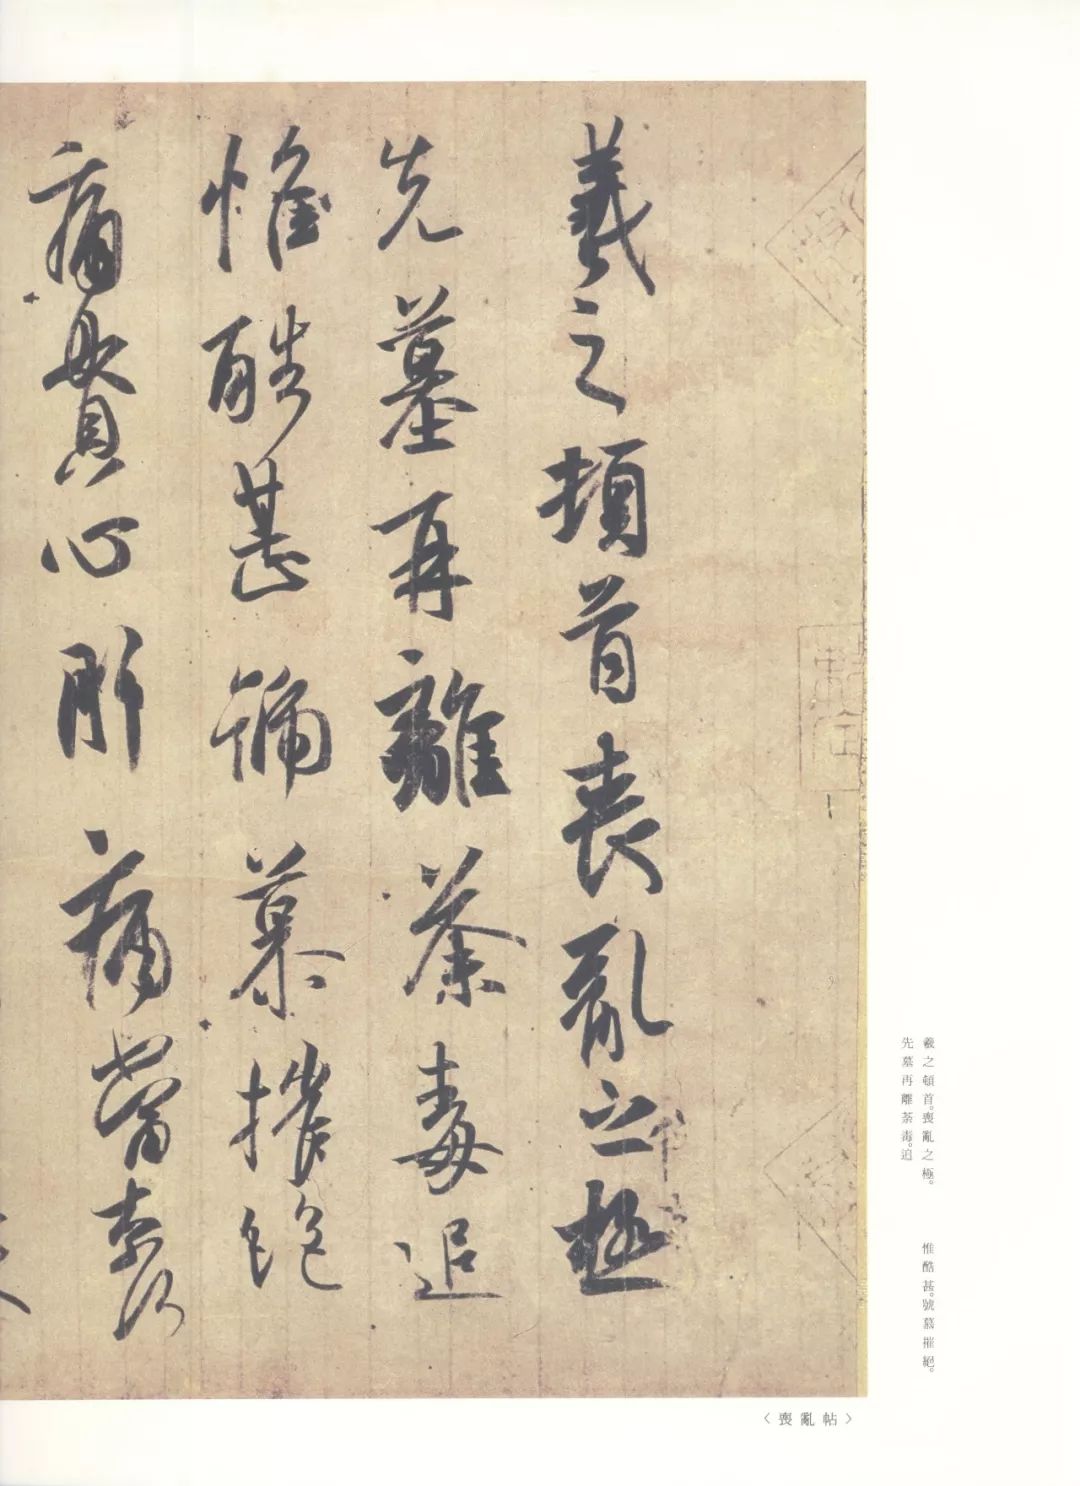 羲之頓首喪亂之極
先墓再離荼毒追
惟酷甚號慕摧絶
痛貫心肝痛當柰何
羲之頓首。喪亂之極。
先墓再離荼毒。追
惟酷甚。號慕摧絕。
〈喪亂帖〉